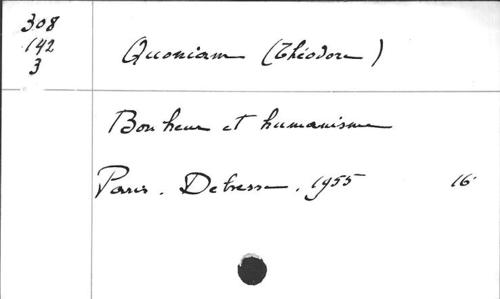 308
142
3
Quoniam (Théodore)
Bonheur et humanisme
Paris. Debresse. 1955 16°